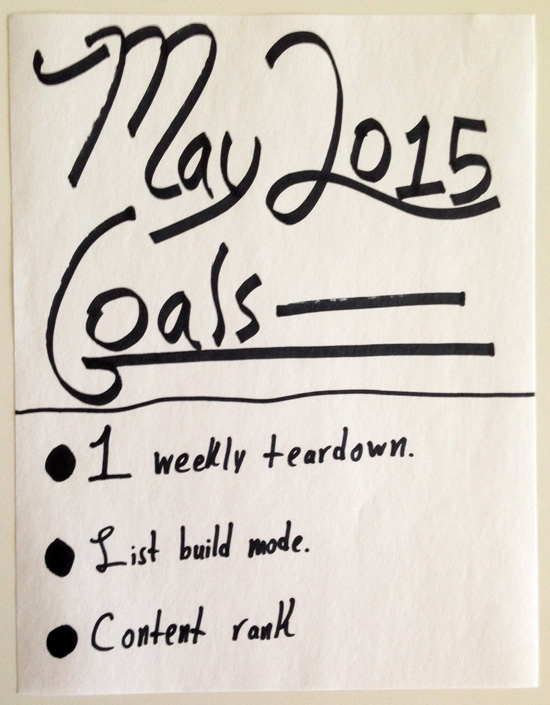 May 2015
Goals
● 1 weekly teardown.
● List build mode.
● Content rank